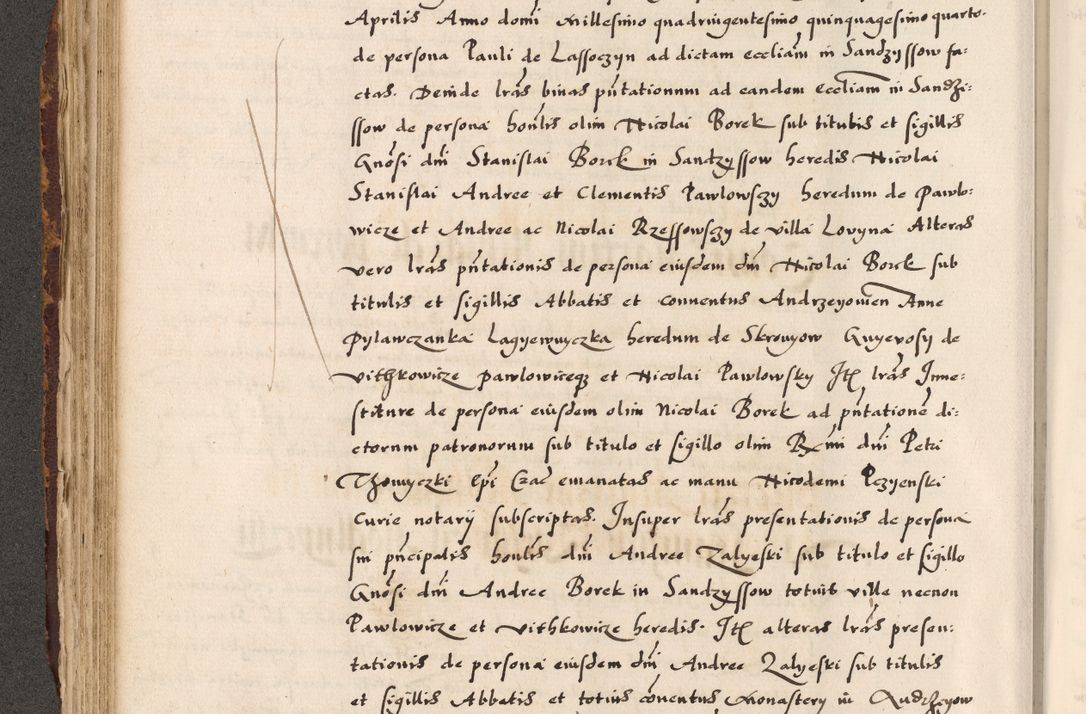 Aprilis Anno domi millesimo quadringentesimo quinquagesimo quarto.
de persona Pauli de Lassoczyn ad dictam eccliam in Sandzyssow fa:
ctas. Deinde lras binas pntationum ad eandem eccliam in Sandzi:
ssow de persona honlis olim Nicolai Borek sub titulis et sigillis
Gnosi dni Stanislai Borek in Sandzyssow heredis Nicolai
Stanislai Andree et Clementis Pawlowsczy heredum de Pawlo:
wicze et Andree ac Nicolai Rzessowsczy de villa Lovyna Alteras
vero lras pntationis de persona eiusdem dni Nicolai Borek sub
titulis et sigillis Abbatis et conventus Andrzeyowien Anne
Pylawczanka Lagyewnyczka heredum de Skronyow Gnyevosy de
vithkowicze pawlowiceqz et Nicolai Pawlowsky Ite lras Inne:
stiture de persona eiusdem olim Nicolai Borek ad pntatione di:
ctorum patronorum sub titulo et sigillo olim Rmi dni Petri
Thomyczki Epi Crac emanatas ac manu Nicodemi Pczyenski
Curie notarij subscriptas. Insuper lras presentationis de persona
sui pncipalis honlis dni Andree Zalyeski sub titulo et sigillo
Gnosi dni Andree Borek in Sandzyssow totius ville necnon
Pawlowicze et vithkowicze heredis. Ite alteras lras presen:
tationis de persona eiusdem dni Andree Zalyeski sub titulis
et sigillis Abbatis et totius conventus monastery in Andrzeyow